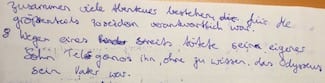 zusammen viele Abenteuer bestehen, die für die
größtenteils Poseidon verantwortlich war.
8 Wegen eines Streits tötete sein eigener
Sohn Telegonos ihn, ohne zu wissen, das Odysseus
sein Vater war.